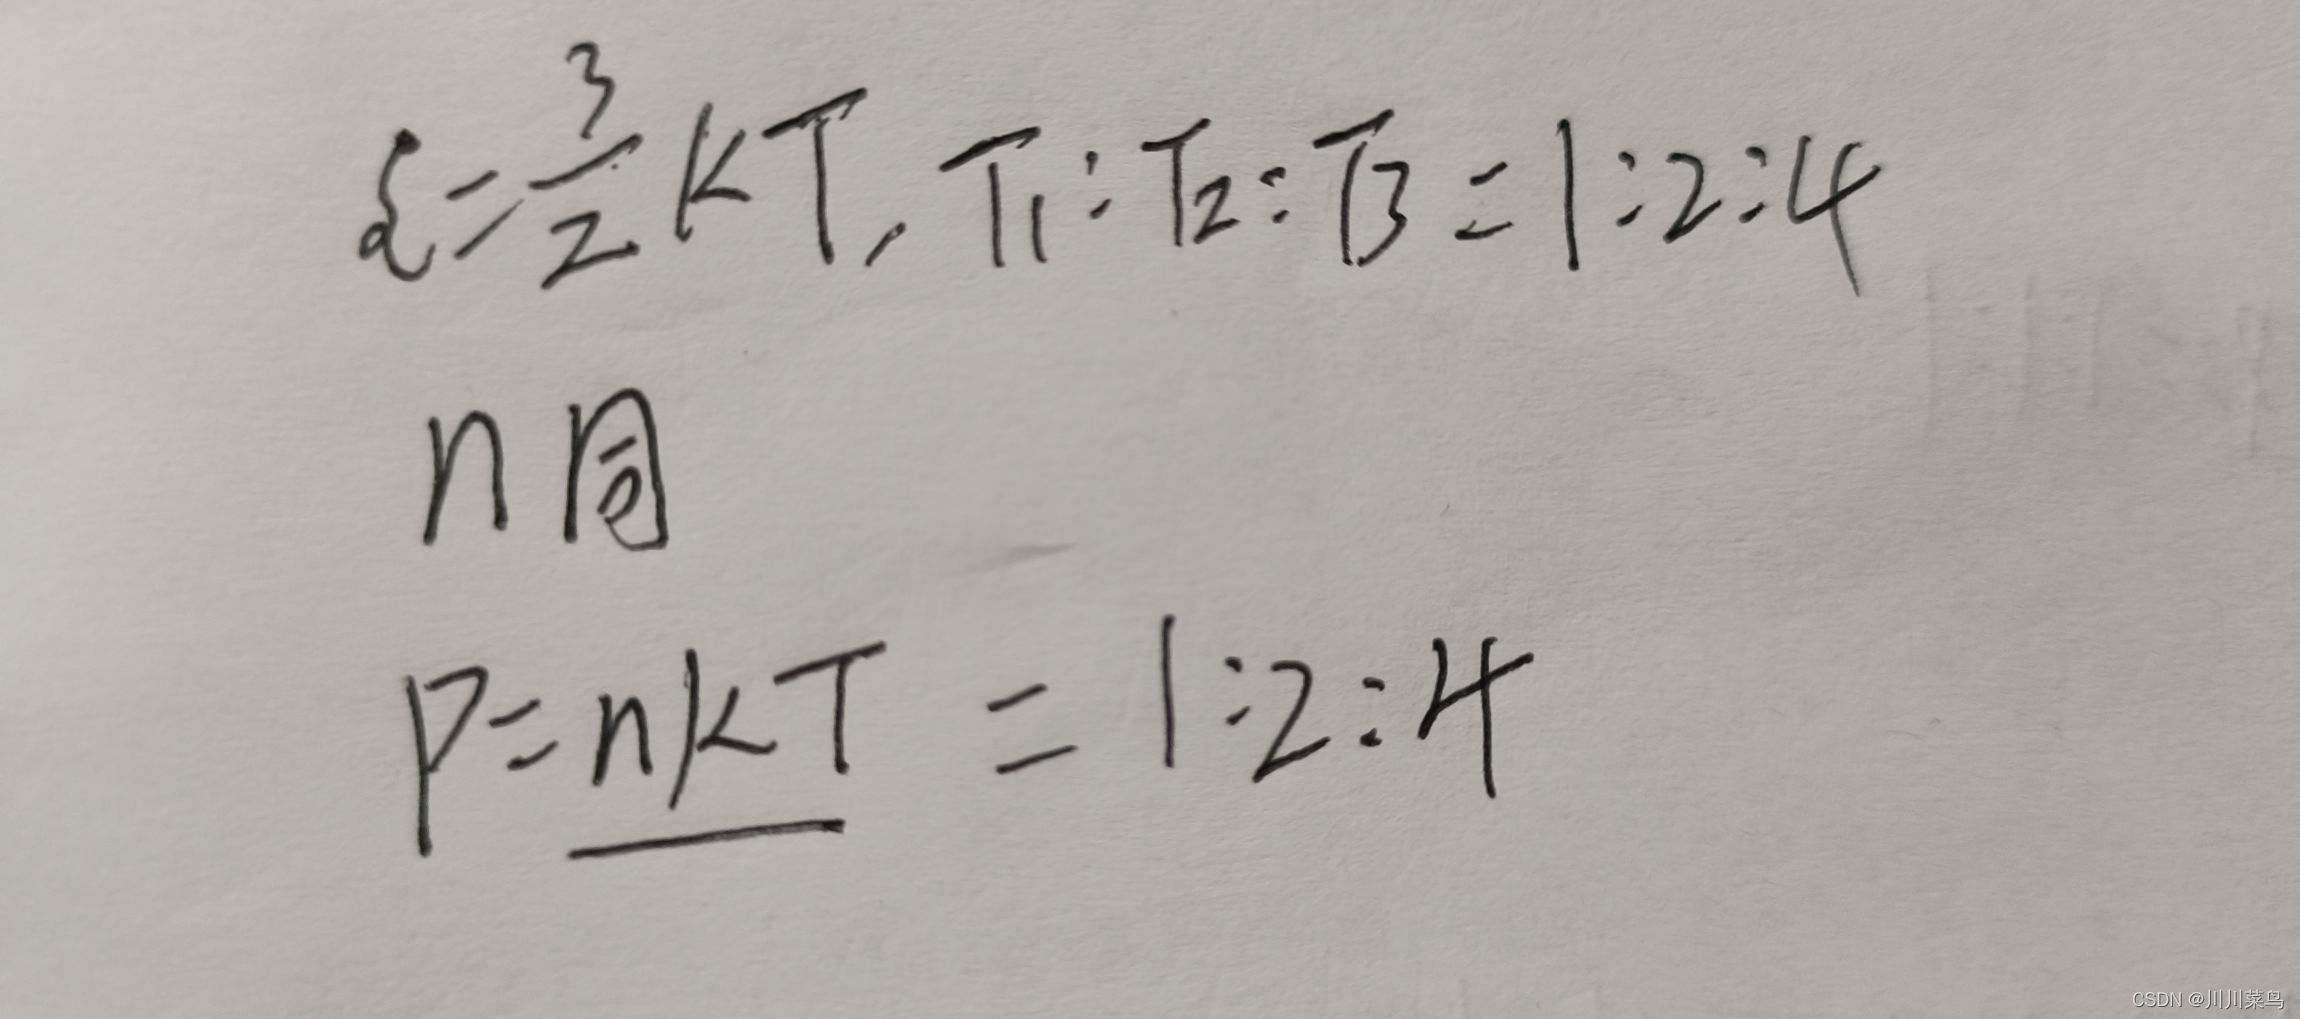 ε=3/2 kT, T1:T2:T3=1:2:4
n同
P=nkT =1:2:4
CSDN @川川菜鸟